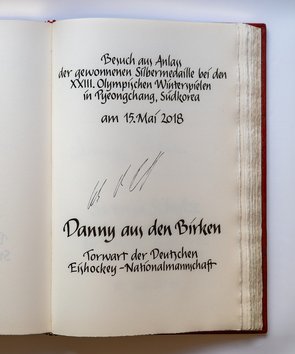 Besuch aus Anlass
der gewonnenen Silbermedaille bei den
XXIII. Olympischen Winterspielen
in Pyeongchang, Südkorea
am 15. Mai 2018
Danny aus den Birken
Torwart der Deutschen
Eishockey-Nationalmannschaft